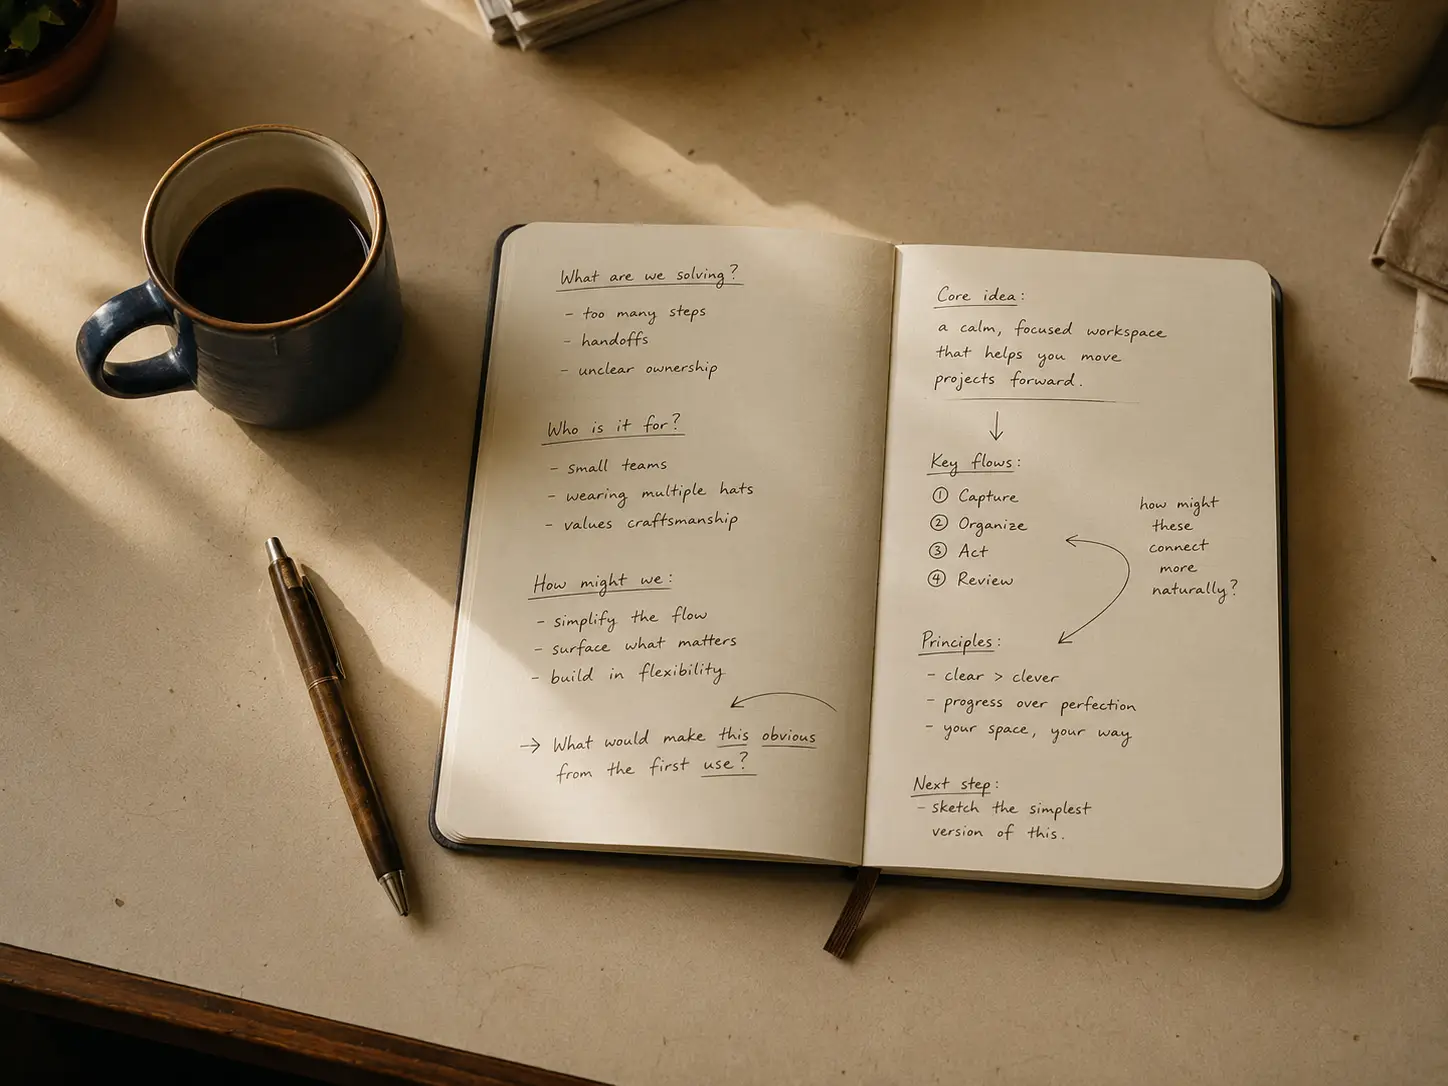 What are we solving?
- too many steps
- handoffs
- unclear ownership
Who is it for?
- small teams
- wearing multiple hats
- values craftsmanship
How might we:
- simplify the flow
- surface what matters
- build in flexibility
→ What would make this obvious
from the first use?
Core idea:
a calm, focused workspace
that helps you move
projects forward.
↓
Key flows:
① Capture
② Organize
③ Act
④ Review
how might
these
connect
more
naturally?
Principles:
- clear > clever
- progress over perfection
- your space, your way
Next step:
- sketch the simplest
version of this.